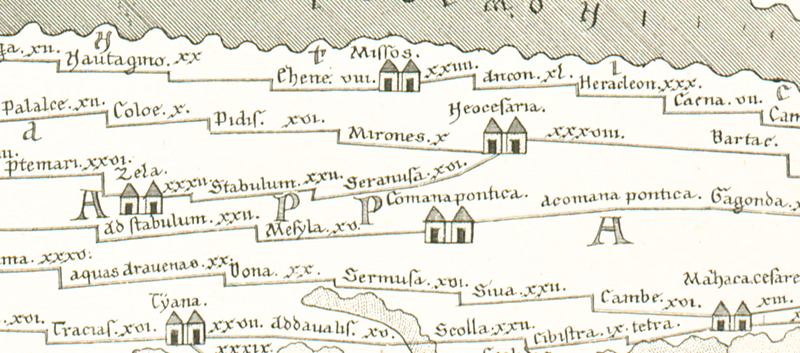 Missos.
Yautagno. xx
Chene. viii.
xxiiii.
Ancon. xl.
Heracleon. xxx.
Caena. vii.
Palalce. xii.
Coloe. x.
Pidis. xvi.
Mirones. x
Yeocesaria.
xxxviii.
Bartae.
d
Ptemari. xxvi.
Zela.
Stabulum. xxii.
Seranusa. xvi.
A
P
P
A
Comana pontica.
acomana pontica.
Gagonda.
ad stabulum. xxii.
Mesyla. xv.
aquas aravenas. xx.
Dona. xx.
Sermusa. xvi.
Siua. xxii.
Cambe. xvi.
xiii.
Tyana.
xvi.
Tracias. xvi.
xxvii.
addavalis. xv.
Scolla. xxii.
Cibistra. ix.
tetra.
xxxix.